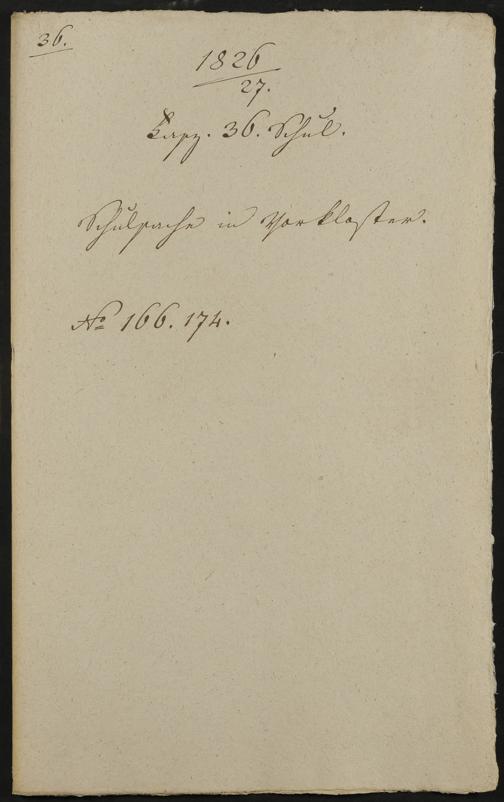 36.
1826
27.
Fasz. 36. Schul.
Schulsache in Vorkloster.
No 166. 174.